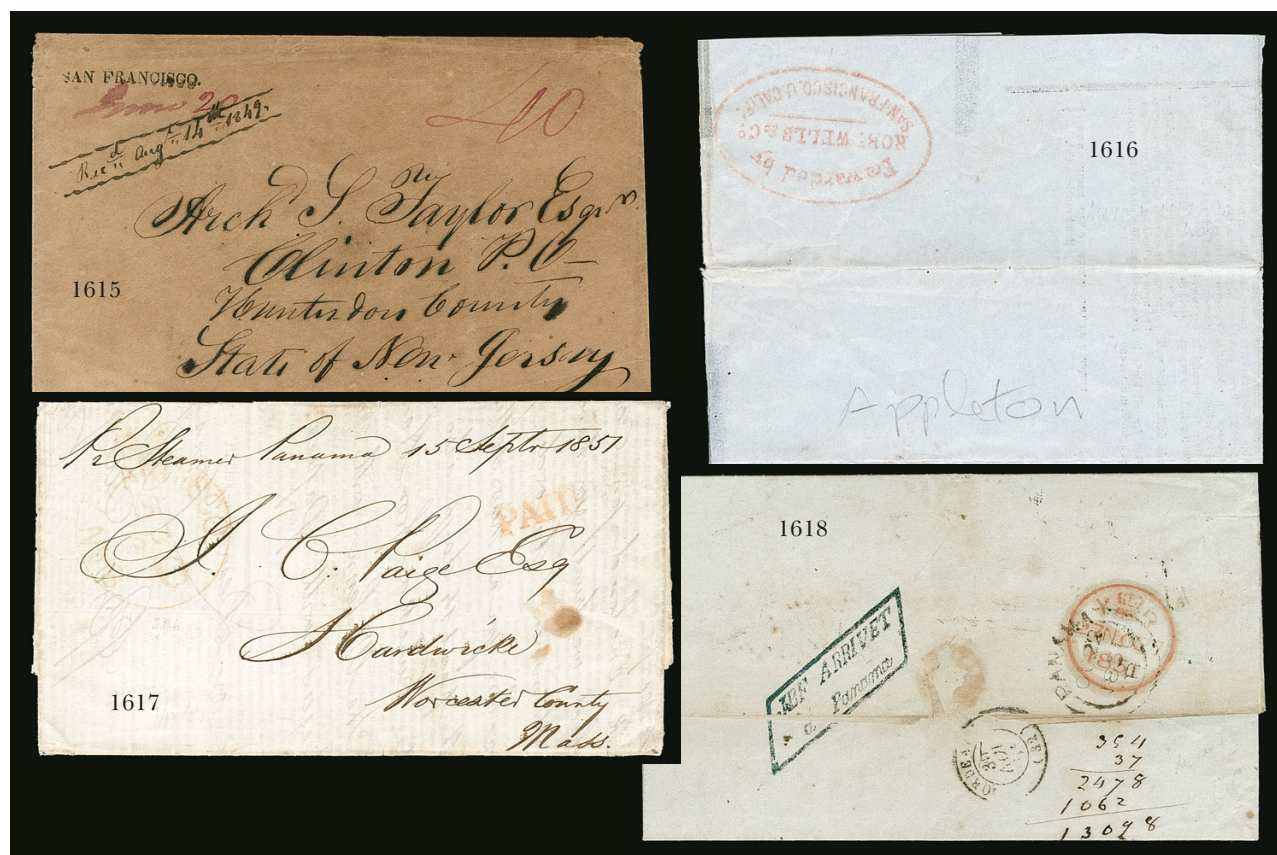 SAN FRANCISCO.
June 20
40
Rec'd Augt 14th 1849.
Archd S. Taylor Esqr
Clinton P. O
Hunterdon County
State of New Jersey
1615
Forwarded by
WELLS & Co
SAN FRANCISCO, U. CALIF.
1616
Appleton
Pr Steamer Panama 15 Septr 1851
PAID
J. C. Paige Esq
Hardwicke
Worcester County
Mass.
1617
1618
ARRIVET
a Panama
354
37
2478
1062
13098